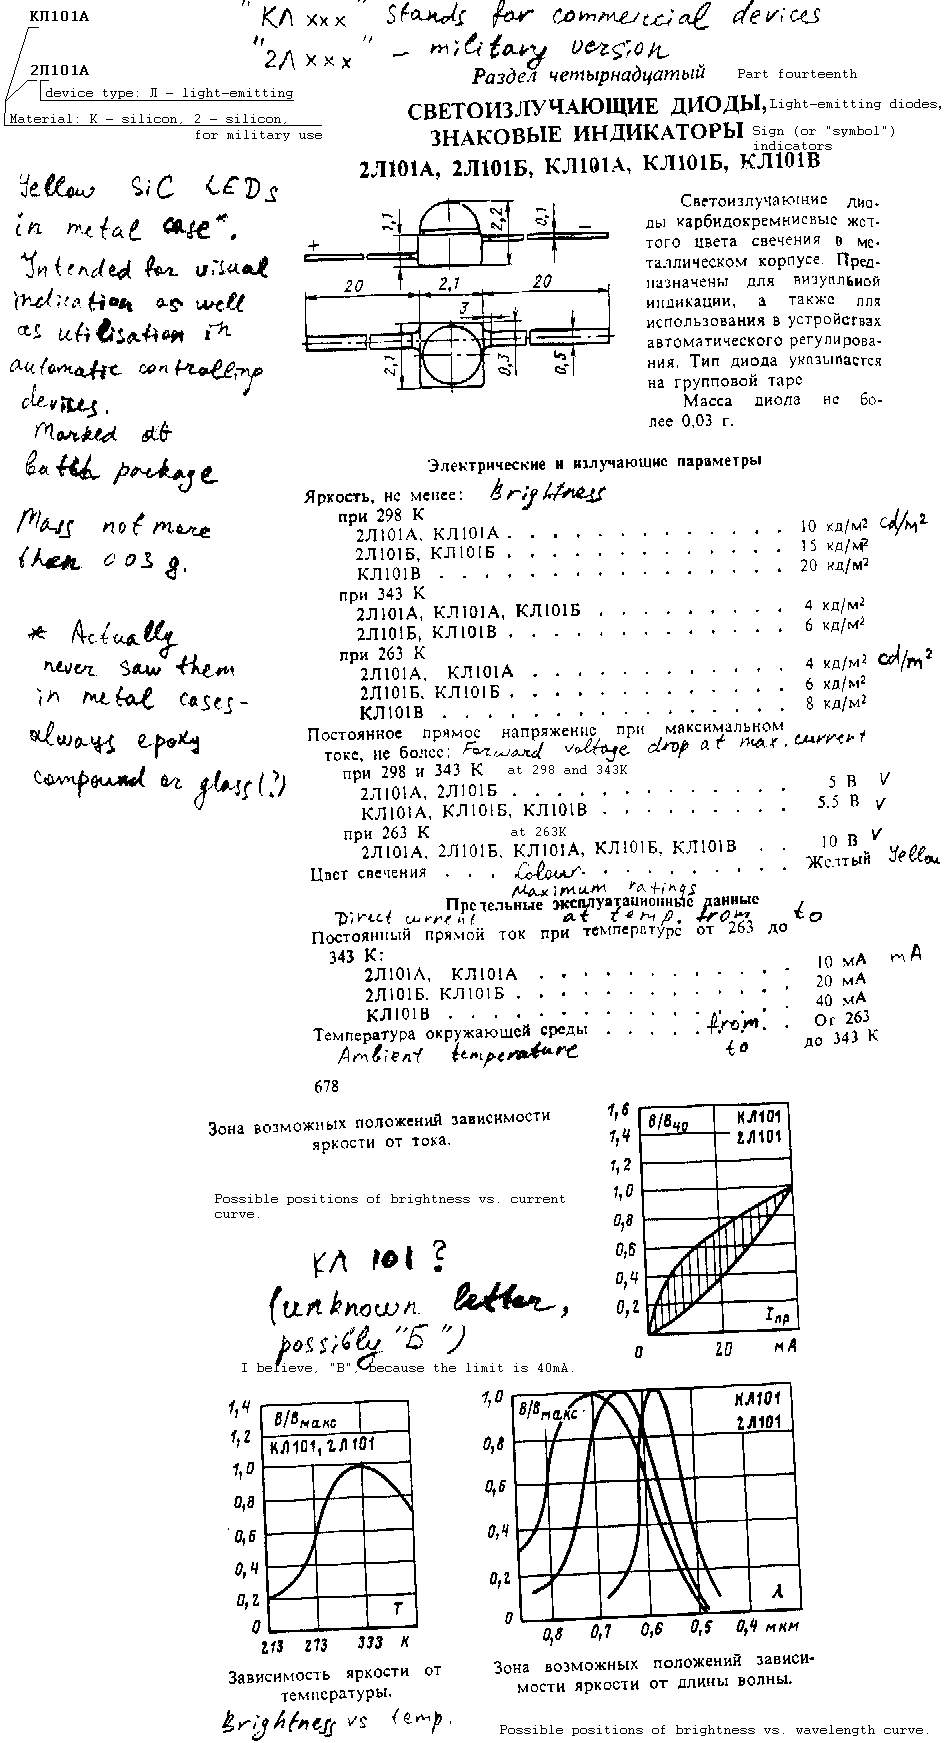 КП101А
"КЛ xxx" Stands for commercial devices
"2Л xxx" - military version
2П101А
device type: Л - light-emitting
Material: К - silicon, 2 - silicon,
for military use
Раздел четырнадцатый Part fourteenth
СВЕТОИЗЛУЧАЮЩИЕ ДИОДЫ, Light-emitting diodes,
ЗНАКОВЫЕ ИНДИКАТОРЫ Sign (or "symbol")
indicators
2Л101А, 2Л101Б, КЛ101А, КЛ101Б, КЛ101В
Yellow SiC LEDs
in metal case*.
Intended for visual
indication as well
as utilisation in
automatic controlling
devices.
Marked at
batch package
Mass not more
than 0.03 g.
* Actually
never saw them
in metal cases-
always epoxy
compound or glass(?)
1,1
2,2
0,1
+
-
20
2,1
20
3
2,1
0,3
0,5
Светоизлучающие дио-
ды карбидокремниевые жел-
того цвета свечения в ме-
таллическом корпусе. Пред-
назначены для визуальной
индикации, а также для
использования в устройствах
автоматического регулирова-
ния. Тип диода указывается
на групповой таре
Масса диода не бо-
лее 0,03 г.
Электрические и излучающие параметры
Яркость, не менее: Brightness
при 298 К
2Л101А, КЛ101А . . . . . . . . . . . . . 10 кд/м² cd/m²
2Л101Б, КЛ101Б . . . . . . . . . . . . . 15 кд/м²
КЛ101В . . . . . . . . . . . . . . . . 20 кд/м²
при 343 К
2Л101А, КЛ101А, КЛ101Б . . . . . . . . . 4 кд/м²
2Л101Б, КЛ101В . . . . . . . . . . . . . 6 кд/м²
при 263 К
2Л101А, КЛ101А . . . . . . . . . . . . 4 кд/м² cd/m²
2Л101Б, КЛ101Б . . . . . . . . . . . . . 6 кд/м²
КЛ101В . . . . . . . . . . . . . . . . 8 кд/м²
Постоянное прямое напряжение при максимальном
токе, не более: Forward voltage drop at max. current
при 298 и 343 К at 298 and 343K
2Л101А, 2Л101Б . . . . . . . . . . . . . 5 В V
КЛ101А, КЛ101Б, КЛ101В . . . . . . . . 5.5 В V
при 263 К at 263K
2Л101А, 2Л101Б, КЛ101А, КЛ101Б, КЛ101В . . 10 В V
Цвет свечения . . . Colour . . . . . . . . . Желтый Yellow
Maximum ratings
Предельные эксплуатационные данные
Direct current at temp. from to
Постоянный прямой ток при температуре от 263 до
343 К:
2Л101А, КЛ101А . . . . . . . . . . . . 10 мА mA
2Л101Б. КЛ101Б . . . . . . . . . . . . . 20 мА
КЛ101В . . . . . . . . . . . . . . . . 40 мА
Температура окружающей среды . . . . . from . . От 263
Ambient temperature to до 343 К
678
Зона возможных положений зависимости
яркости от тока.
Possible positions of brightness vs. current
curve.
КЛ 101?
(unknown letter,
possibly "Б")
I believe, "В", because the limit is 40mA.
1,6
1,4
1,2
1,0
0,8
0,6
0,4
0,2
B/B40
КЛ101
2Л101
Iпр
0 20 мА
1,4
1,2
1,0
0,8
0,6
0,4
0,2
0
B/Bмакс
КЛ101, 2Л101
T
213 273 333 К
Зависимость яркости от
температуры.
Brightness vs temp.
1,0
0,8
0,6
0,4
0,2
0
B/Bмакс
КЛ101
2Л101
λ
0,8 0,7 0,6 0,5 0,4 мкм
Зона возможных положений зависи-
мости яркости от длины волны.
Possible positions of brightness vs. wavelength curve.